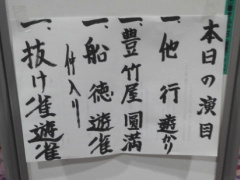 本日の演目
一、他行 遊かり
一、豊竹屋 圓満
一、船徳 遊雀
仲入り
一、抜け雀 遊雀